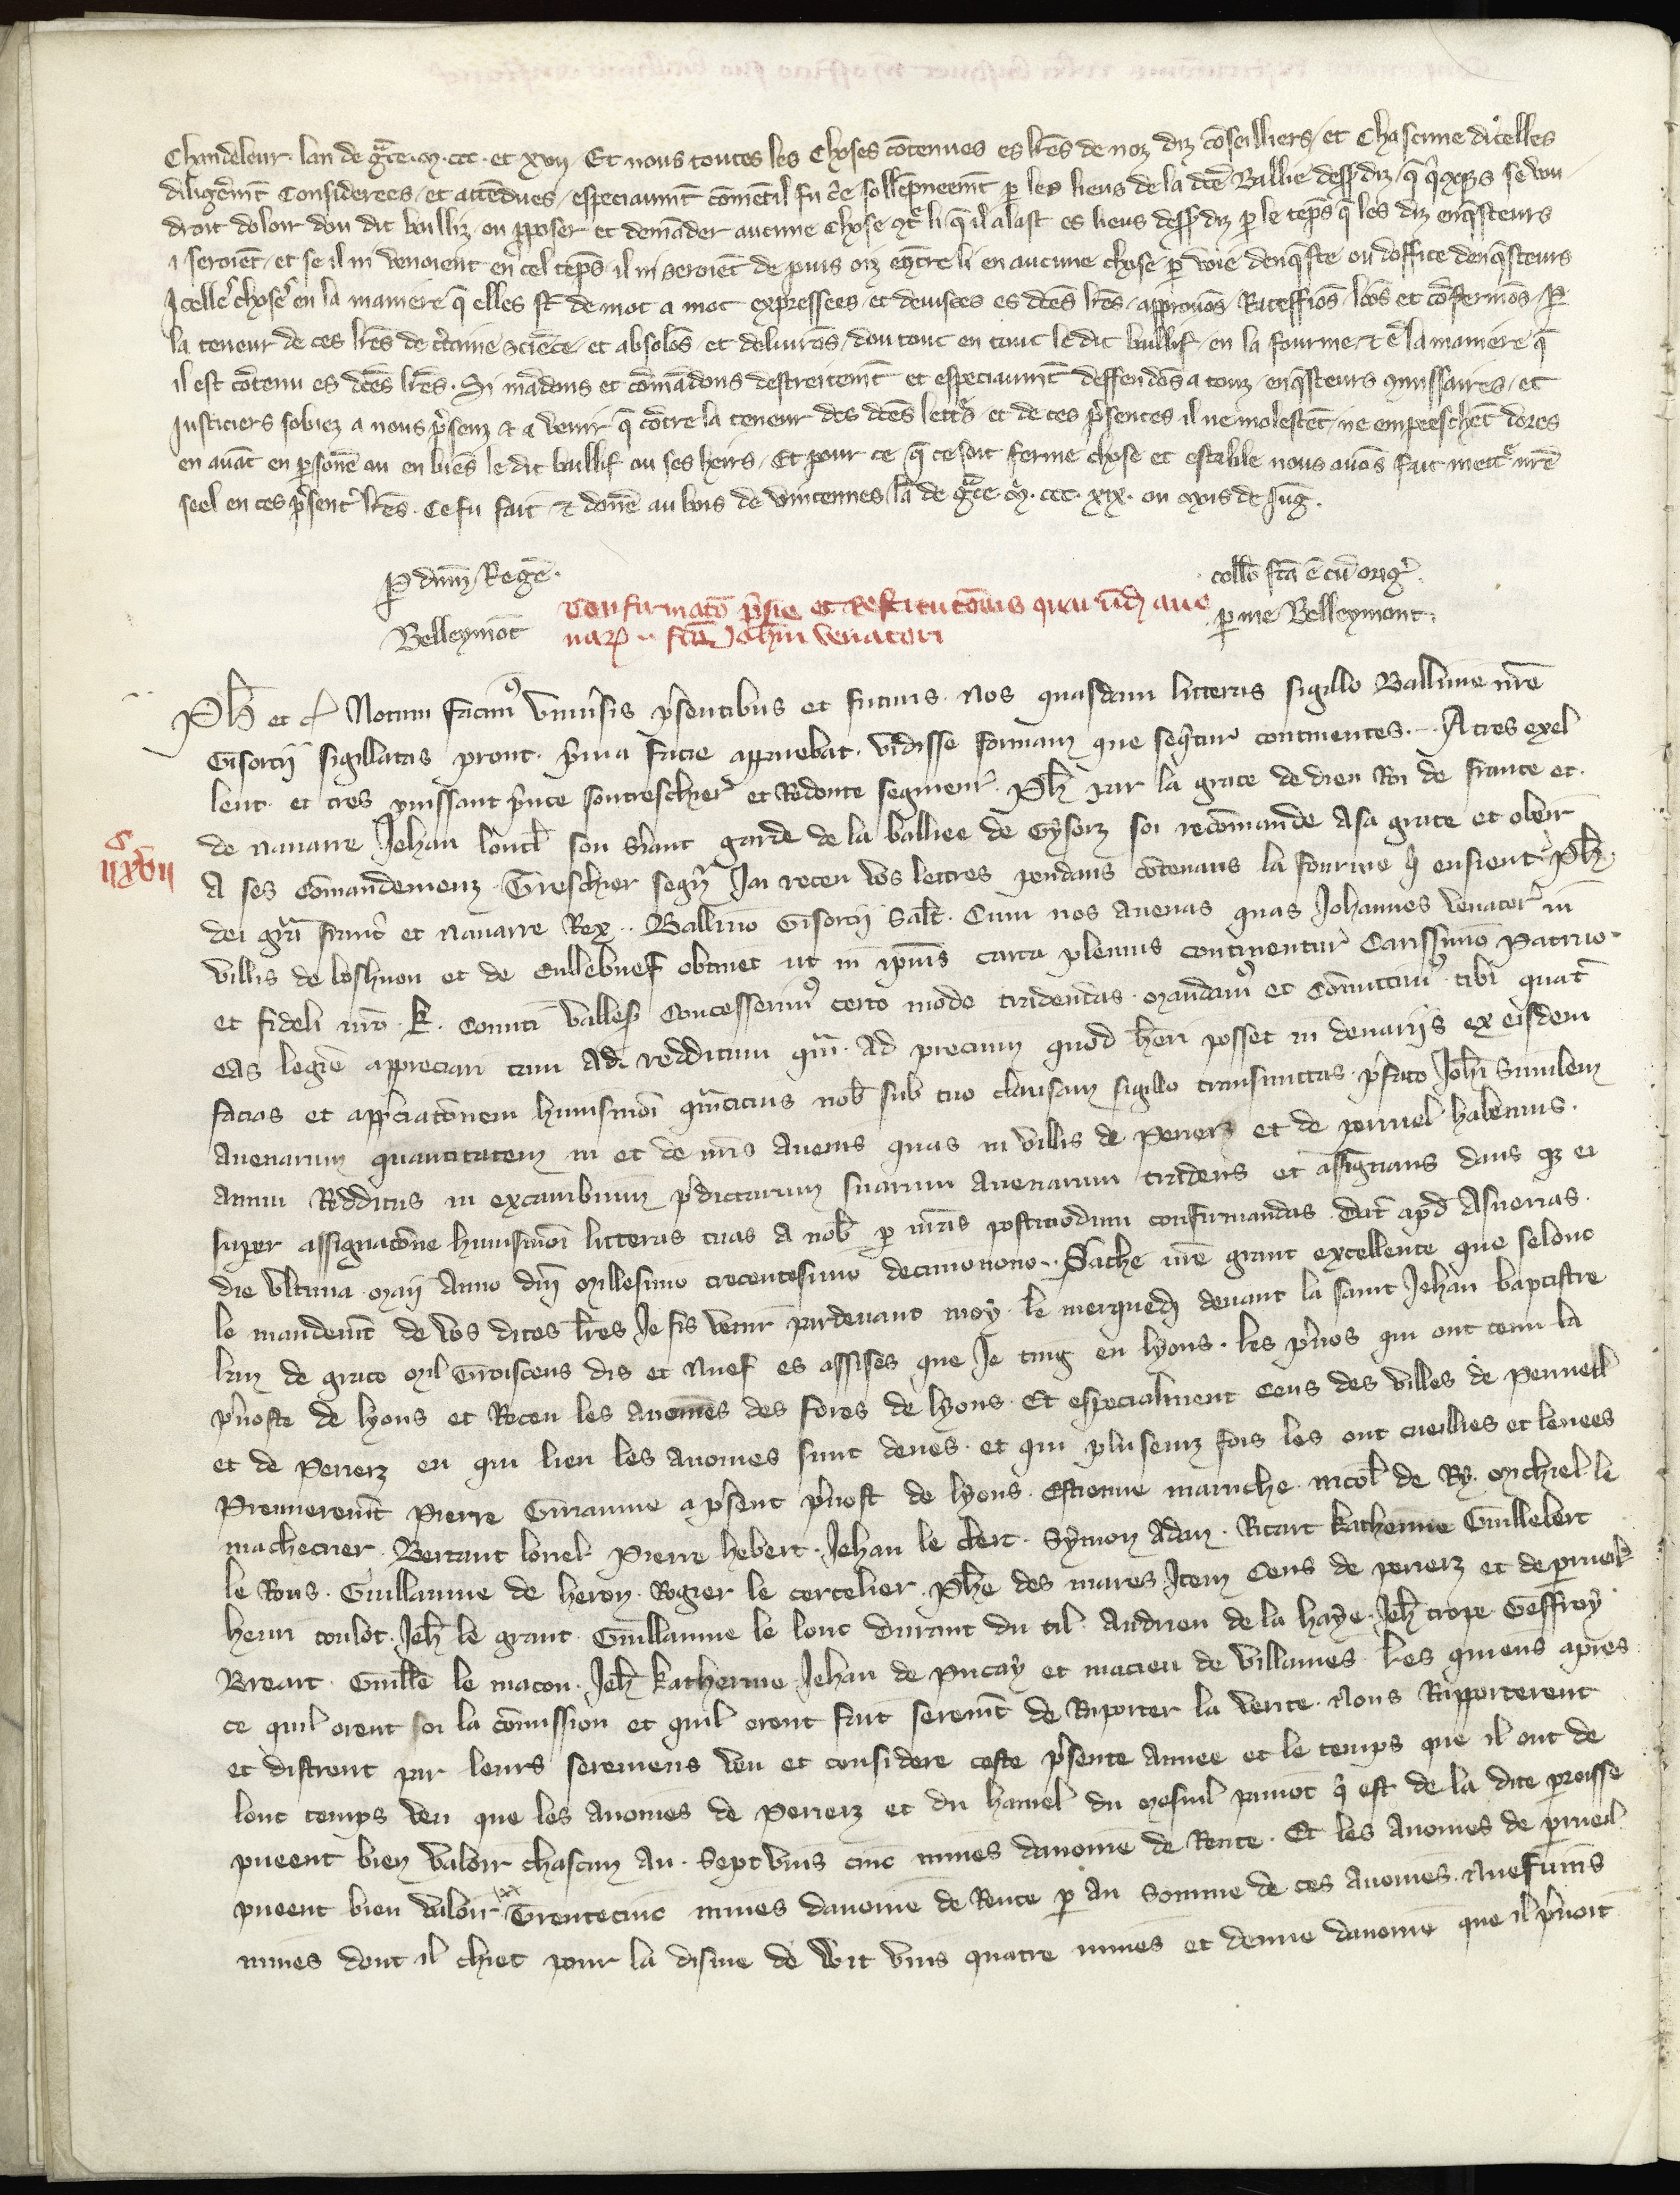 Chandeleur. lan de grace. m. ccc. et xvii. Et nous toutes les choses cōtenues es lrēs de noz diz cōseilliers, et chascune dicelles
diligēmt considerees, et attēdues, especiaumt cōmētil fu crie sollēpneemt p les lieus de la dcē Baillie dess9 diz, q̄ se vou
droit doloir dou dit bailliz, ou pposer et demāder aucune chose 9tre li q̄ il alast es lieus dess9 diz p le tēps q̄ les diz enq̄steurs
i seroiēt, et se il ni venoient en cel tēps il ni seroiēt de puis oiz encūtre li en aucune chose p voie denq̄ste ou doffice denq̄steurs
Icelles choses en la maniere q̄ elles st̄ de mot a mot expressees, et deuisees es dcēs lrēs, approuōs, Ratefiōs, loōs et cōfermōs, p
la teneur de ces lrēs de certaine sciēce, et absolōs, et deliurōs, dou tout en tout le dit baillif, en la fourme, et ē la maniere q̄
il est cōtenu es dcēs lrēs. Si mādons et cōmādons destreitemt et especiaumt deffendōs a touz enq̄steurs 9missaires, et
justiciers sobiez a nous p̄senz et a venir q̄ cōtre la teneur des dcēs lettres, et de ces p̄sentes il ne molestēt, ne empeeschēt dores
en auāt en psonē ou en biēs le dit baillif ou ses heirs. Et pour ce q̄ ce soit ferme chose et estable nous auōs fait mettre nrē
seel en ces p̄sentes lrēs. Ce fu fait et donē au bois de vincennes lā de grace. m. ccc. xix. ou mois de Juḡ.
P dnm Regē.
collō fcā ē cū oriḡ.
Confirmatō et Restitutōnis aue
Belleymōt
p me Belleymont.
narȝ .. fcā Johī venatori
Ph et cͣ Notum facim9 vniūsis p̄sentibus et futuris. Nos quasdam litteras sigillo Balliuie nrē
Gisorcii sigillatas prout. p̄ma facie apparebat. vidisse formam que sequitur continentes. A tres exel
lent. et tres puissant p̄nce son treschier et Redoute segneur. Ph par la grace de dieu Roi de france et.
de nauarre Jehan son s̄iant garde de la baillee de Gysorz soi recōmande a sa grace et obeir
.c
iixvii
a ses cōmandemenz. Treschier segn̄r Jai receu vos lettres pendans cōtenans la fourme q̄ ensieut. Ph.
dei grā franc̄ et nauarre Rex .. Balliuo Gisorcii salt̄. Cum nos auenas quas Johannes venator in
villis de loshuon et de Cullebuef obtinet ut in ipsius carta plenius continentur Carissimo Patruo
et fideli nrō. k. comiti valles̄ concesserim9 certo modo tradendas. mandam9 et cōmittim9 tibi quat̄
eas legitīe appreciari tam ad redditum quam ad precium quod habēri posset in denariis ex eisdem
facias et app̄ciatōnem huiusmōi qm̄cicius nob̄ sub tuo clausam sigillo transmittas. p̄fato Johī similem
auenarum quantitatem in et de nrīs auenis quas in villis de Perierz et de peruel habemus.
annui Redditus in excambium p̄dictarum suarum auenarum tradens et assignans dans q3 ei
super assignatōne huiusmōi litteras tuas a nob̄ p nrās postmodum confirmandas. Dat̄ apd̄ Asnerias.
die vltima maii anno dn̄i millesimo trecentesimo decimonono. Sache nrē grant excellence que selonc
le mandemt de vos dites lrēs Je fis venir pardeuant moy. le merquedi deuant la saint Jehan baptistre
lan de grace mil Troiscens dis et nuef es assises que Je ting en lyons. les p̄uos qui ont tenu la
p̄uoste de lyons et Receu les auomes des fores de lyons. Et especialment Ceus des villes de Peruell
et de Perierz en qui lieu les auomes sunt deues. et qui pluseurz fois les ont cueillies et leuees
Premieremt Pierre Guiaume a p̄sent p̄uost de lyons. Estienne manche. nicol̄ de Ry. Michiel le
machecrier. Bertaut louel. Pierre hebert. Jehan le clerc. Symon Adam. Ricart katherine Guillebert
le Rous. Guillaume de heron. Rogier le cercelier. Phē des mares Item Ceus de perierz et de prueil
henri coulōt. Jeh le grant. Guillaume le lonc Durant du til. Andrieu de la haye. Jeh trope Geffroy
Breart. Guillē le macon. Jeh katherine Jehan de Pucay et macieu de villaines. Les quiens apres
ce quil orent soi la cōmission et quil orent fait seremt de Raporter la verite. nous Rapporterent
et distrent par leurs seremens veu et considere ceste p̄sente annee et le temps que il ont de
lonc temps veu que les auomes de Perierz et du hamel du mesnil q̄ est de la dite proisse
pueent bien valoir chascun an. Sept vins cinc mines dauome de Rente. Et les auomes de prueil
pueent bien valoir Trente cinc mines dauome de Rente p an Somme de ces auomes. nuef uins
mines dont il chiet pour la disme de Wit vins quatre mines et demie dauome que il p̄noit